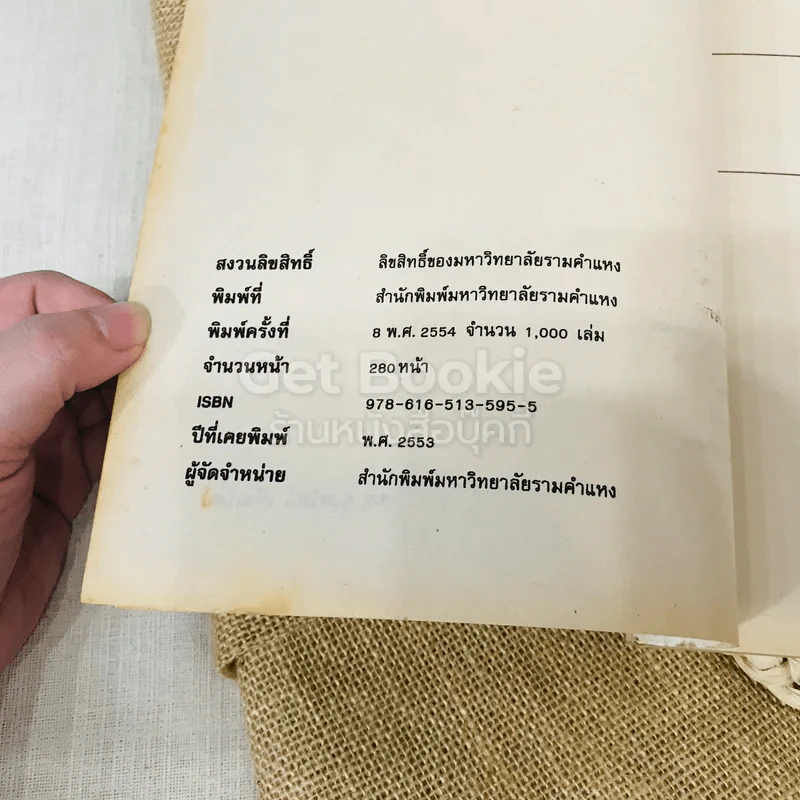 สงวนลิขสิทธิ์ ลิขสิทธิ์ของมหาวิทยาลัยรามคำแหง
พิมพ์ที่ สำนักพิมพ์มหาวิทยาลัยรามคำแหง
พิมพ์ครั้งที่ 8 พ.ศ. 2554 จำนวน 1,000 เล่ม
จำนวนหน้า 280 หน้า
Get Bookie
ISBN 978-616-513-595-5
ร้านหนังสือบุ๊คกี้
ปีที่เคยพิมพ์ พ.ศ. 2553
ผู้จัดจำหน่าย สำนักพิมพ์มหาวิทยาลัยรามคำแหง